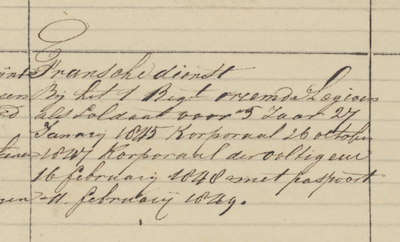 Fransche dienst
Bij het 1 Regt vreemde Legioen
als Soldaat voor 5 Jaar 27
Janury 1845 Korporaal 26 october
1847 Korporaal der voltigeur
16 february 1848 met paspoort
11 februarij 1849.